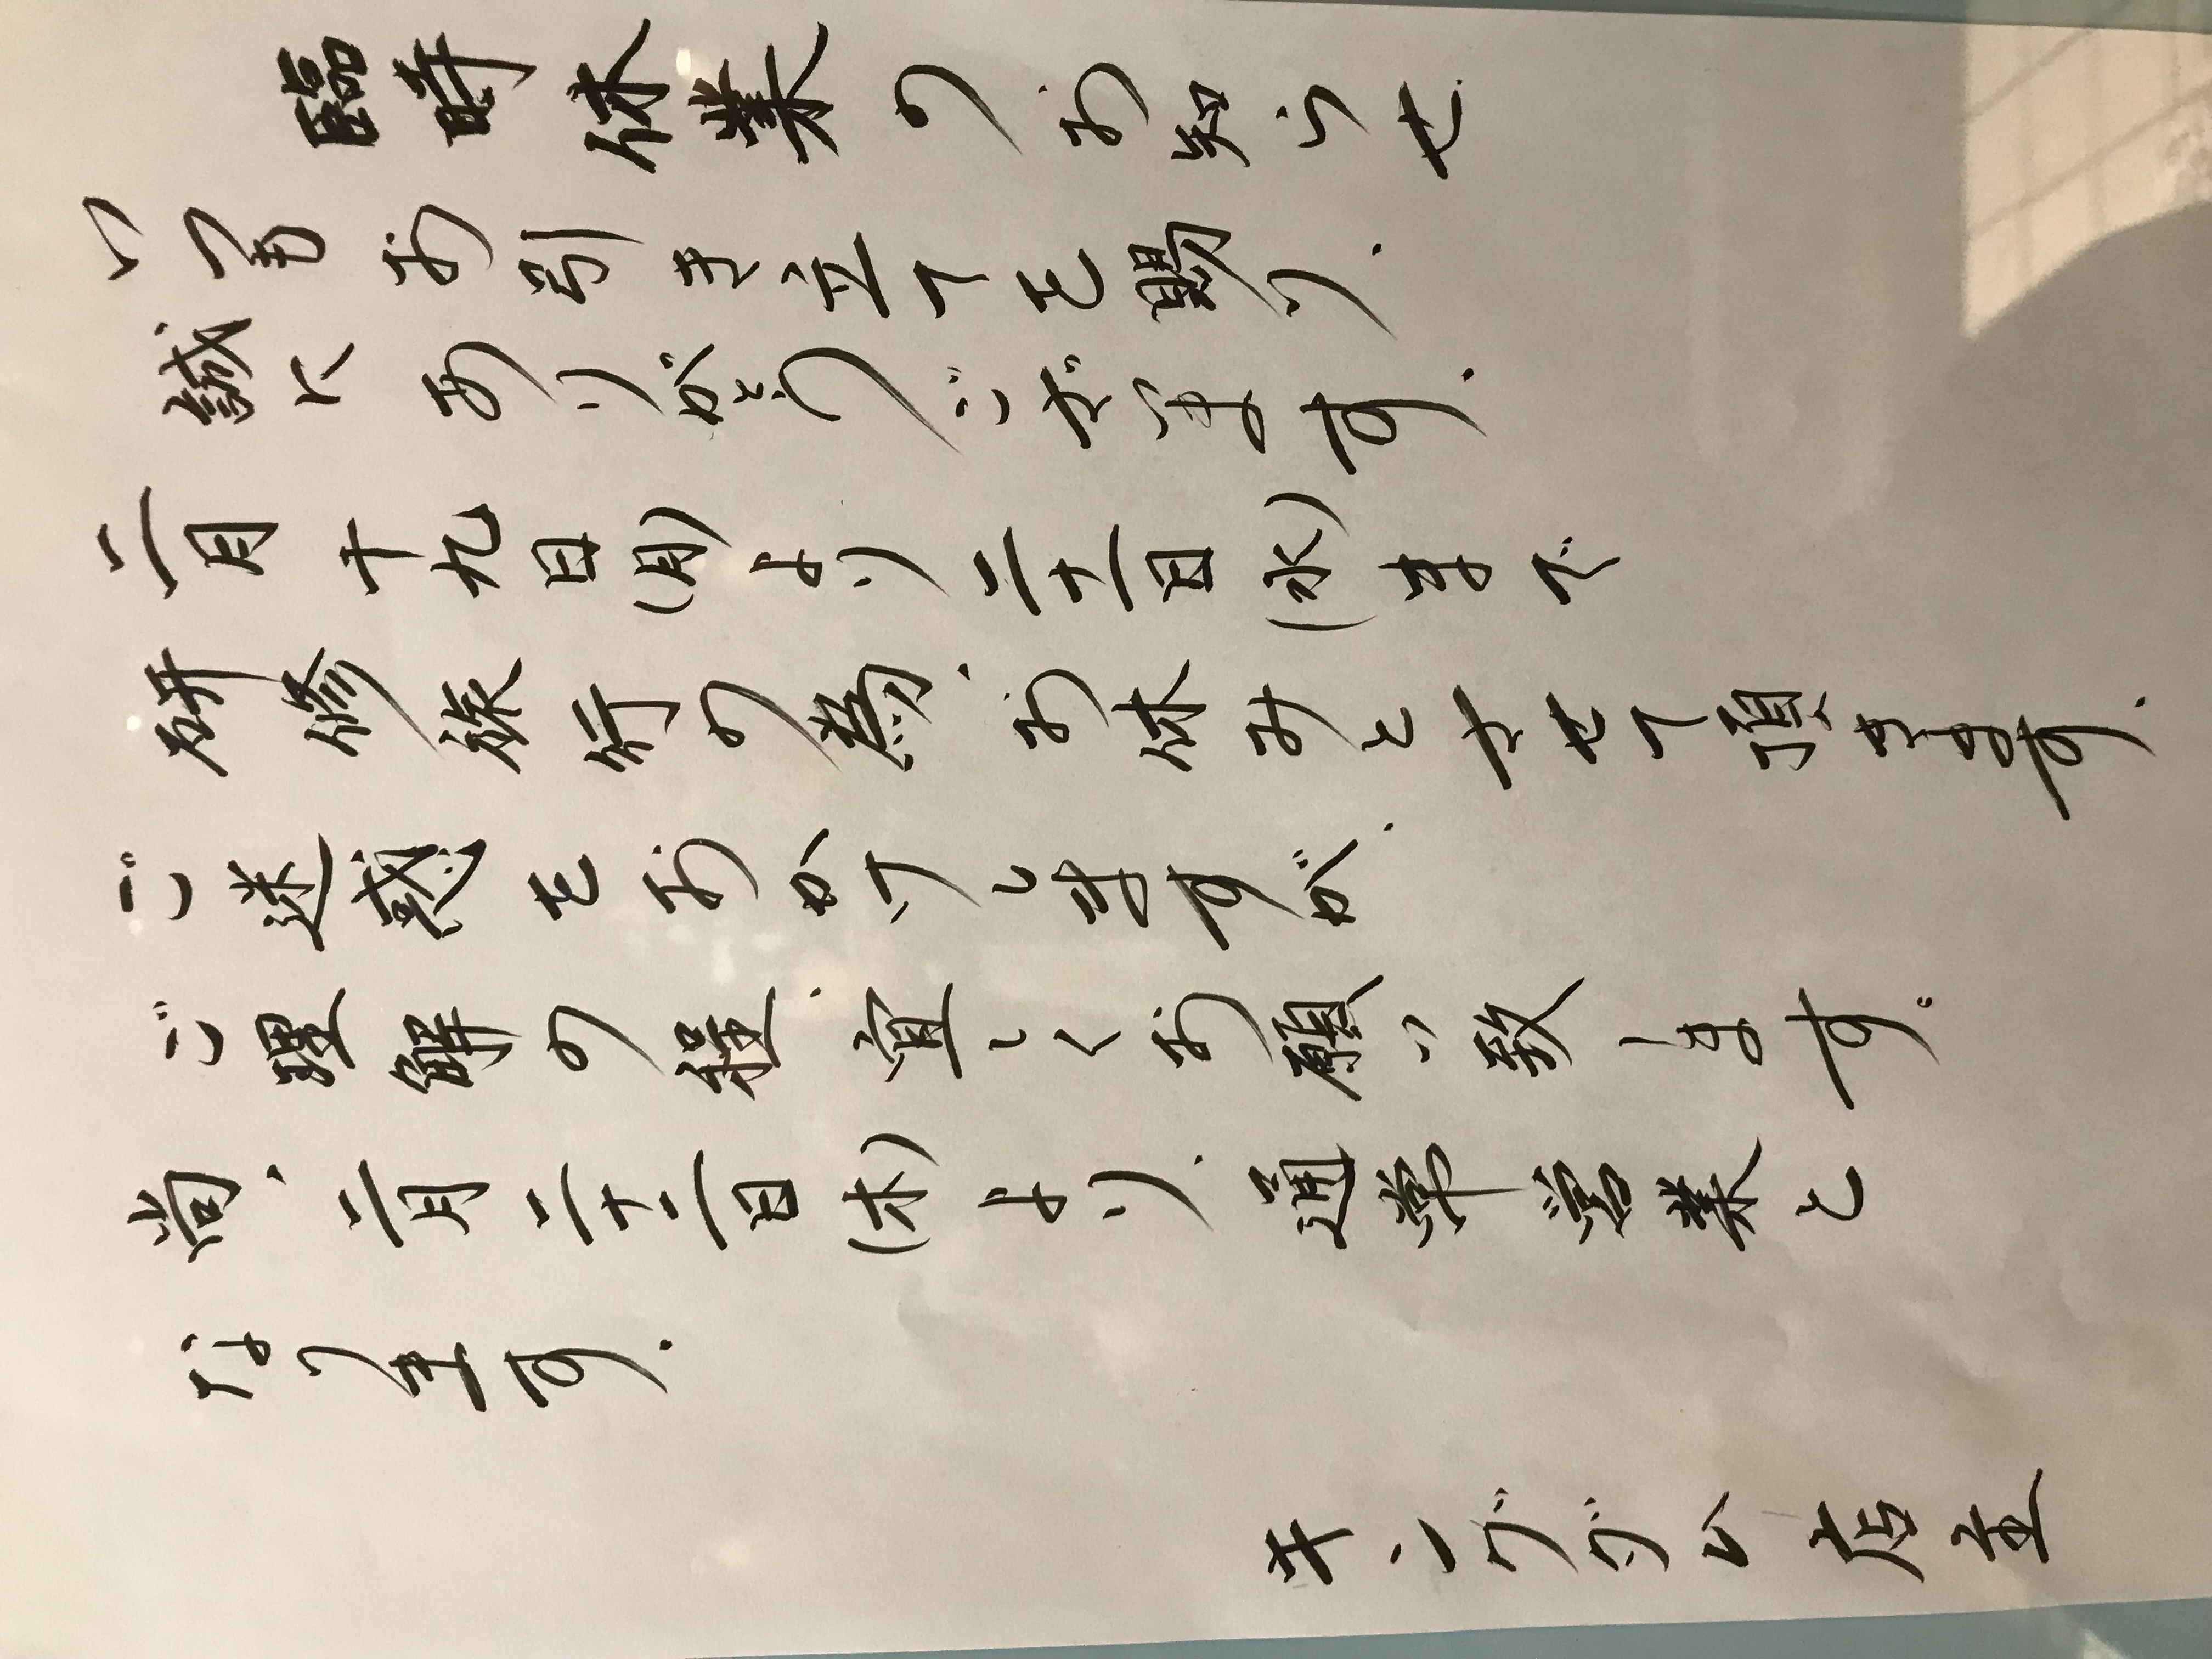 臨時休業のお知らせ
いつもお引き立てを賜り、
誠にありがとうございます。
二月十九日(月)より二十一日(水)まで
研修旅行の為、お休みとさせて頂きます。
ご迷惑をおかけしますが、
ご理解の程、宜しくお願い致します。
尚、二月二十二日(木)より、通常営業と
なります。
店主